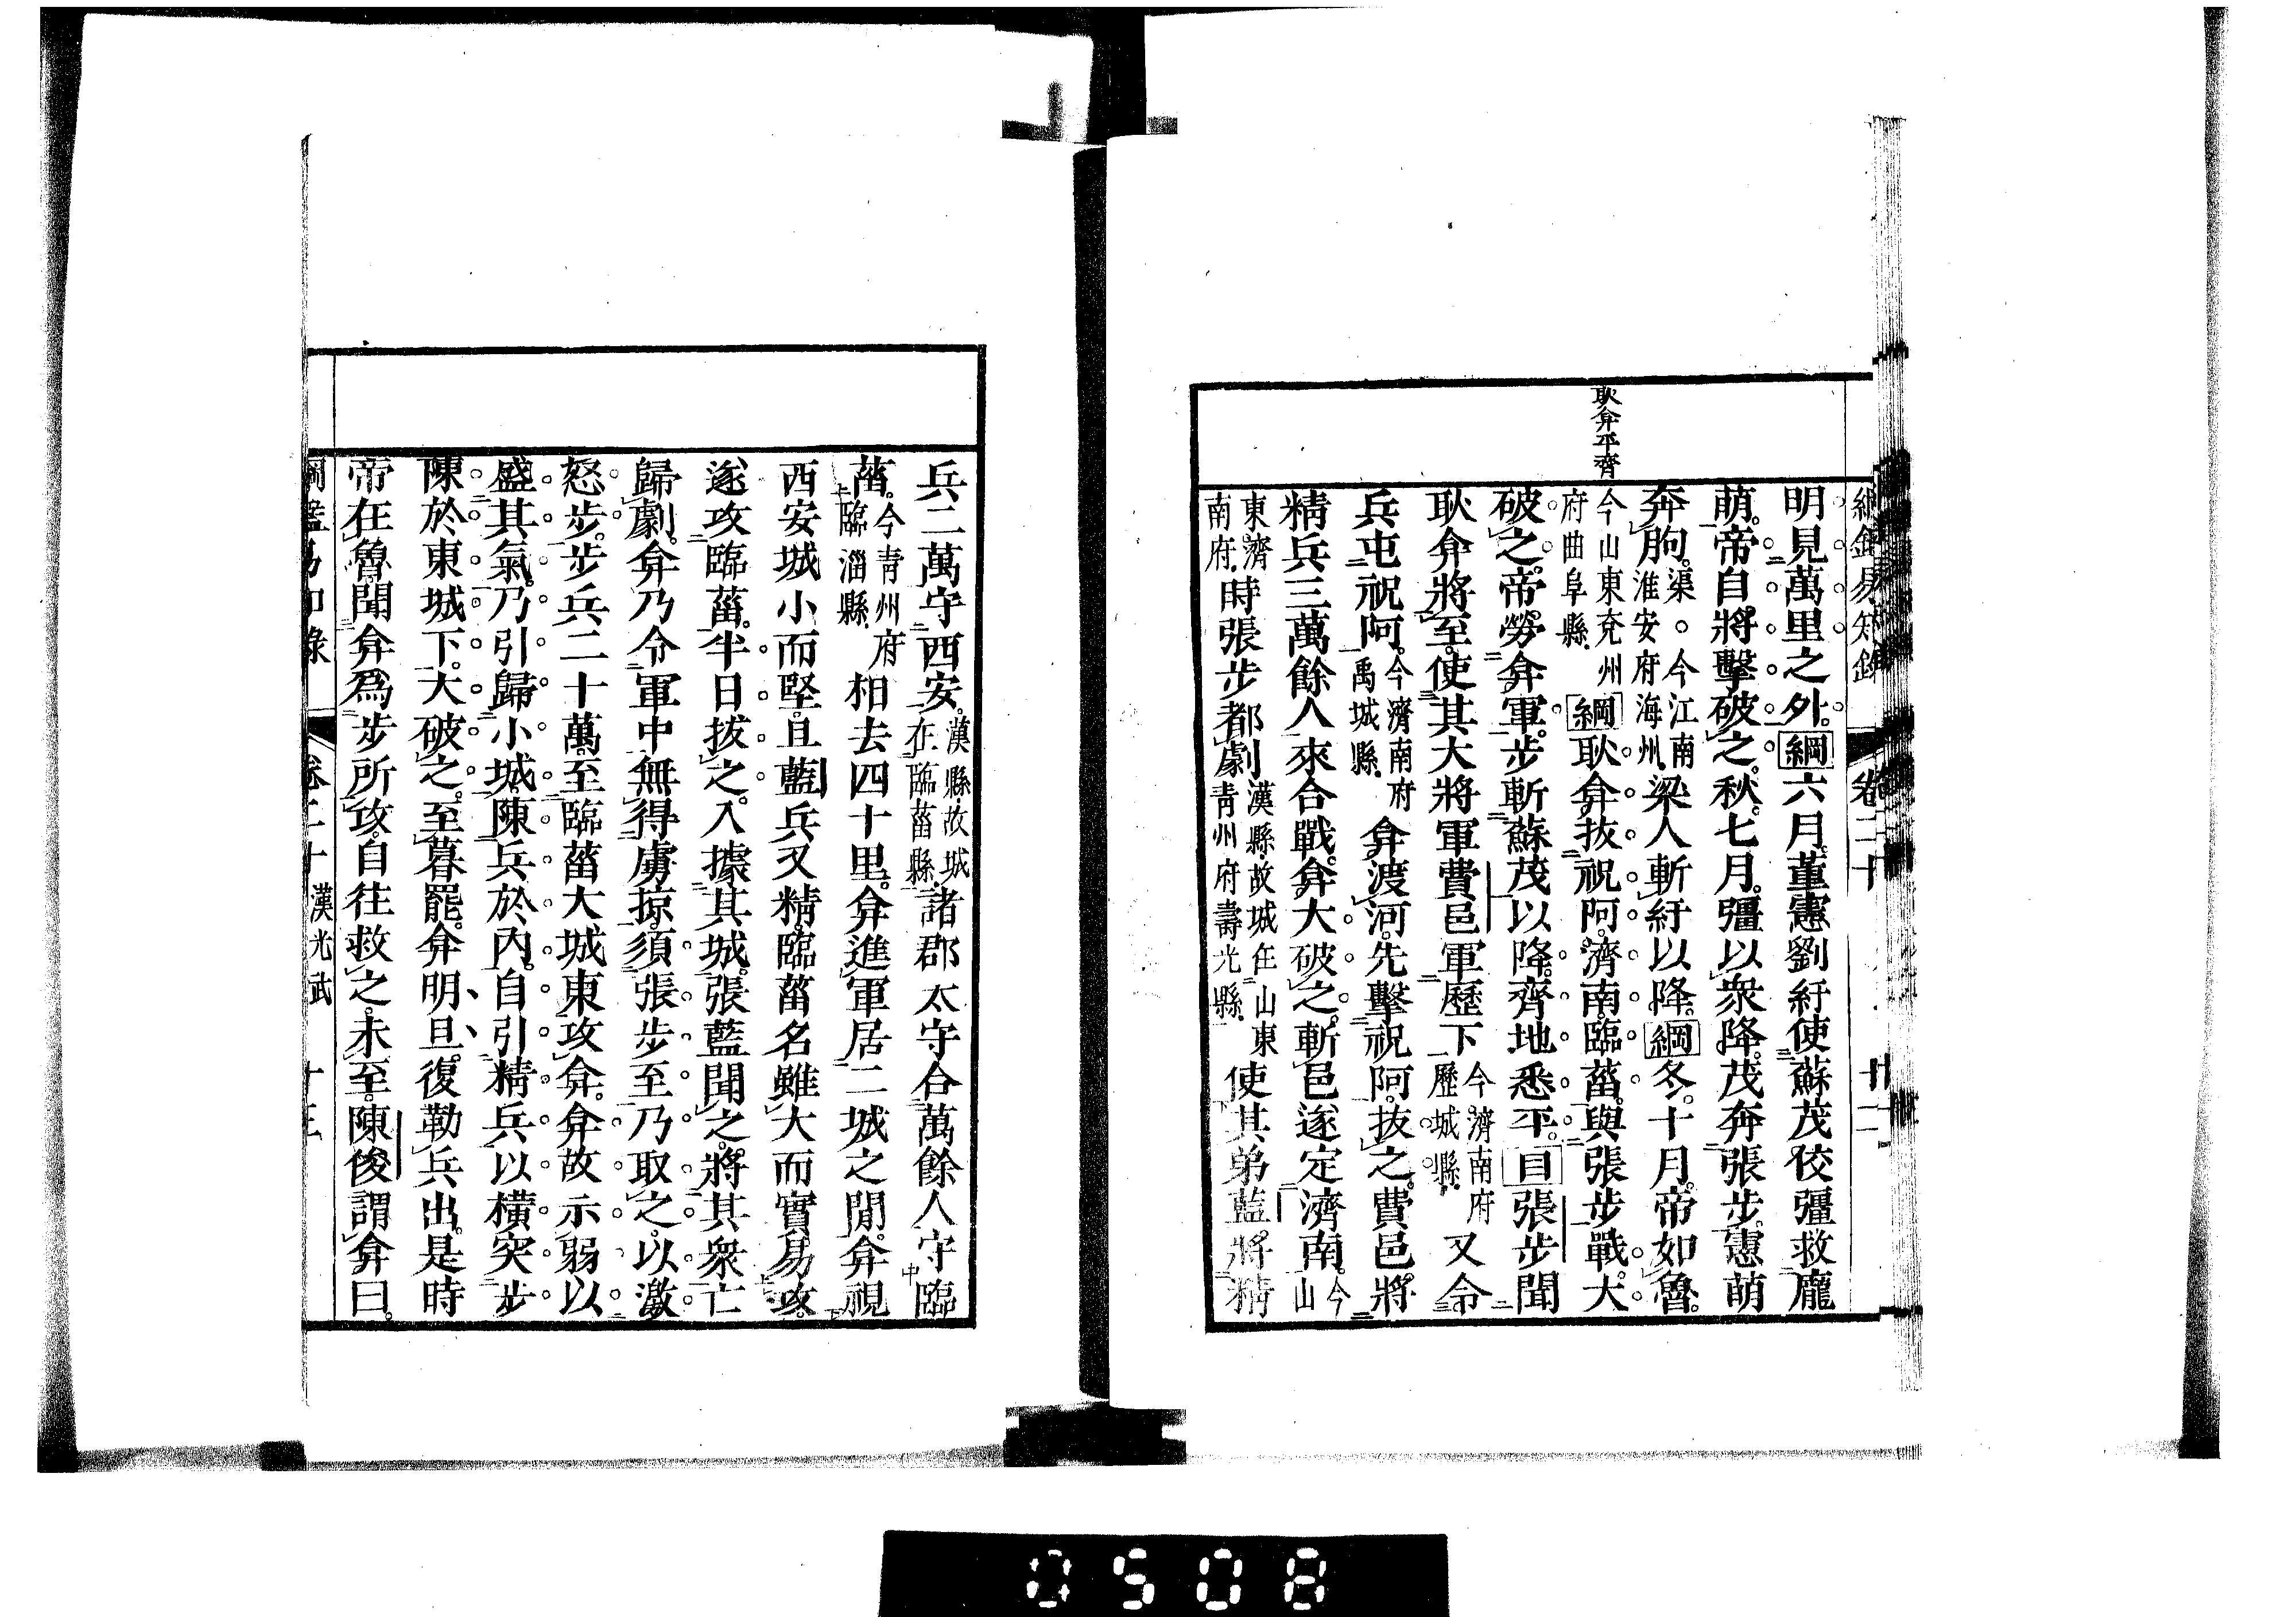 綱鑑易知錄 卷二十
耿弇平齊
明見萬里之外。綱六月。董憲劉紆使蘇茂佼彊救龐
萌。帝自將擊破之。秋七月。彊以衆降。茂奔張步。憲萌
奔朐。渠。今江南淮安府海州。梁人斬紆以降。綱冬。十月。帝如魯。
今山東兗州府曲阜縣。綱耿弇拔祝阿。濟南。臨菑。與張步戰。大
破之。帝勞弇軍。步斬蘇茂以降。齊地悉平。目張步聞
耿弇將至。使其大將軍費邑軍歷下今濟南府歷城縣。又令
兵屯祝阿。今濟南府禹城縣。弇渡河。先擊祝阿。拔之。費邑。將
精兵三萬餘人來合戰。弇大破之。斬邑遂定濟南。今山
東濟南府。時張步都劇漢縣。故城在山東青州府壽光縣。使其弟藍。將精
兵二萬守西安。漢縣。故城在臨菑縣。諸郡太守合萬餘人守臨
菑。今青州府臨淄縣。相去四十里。弇進軍居二城之閒。弇視
西安城小而堅。且藍兵又精。臨菑名雖大而實易攻。
遂攻臨菑。半日拔之。入據其城。張藍聞之。將其衆亡
歸劇。弇乃令軍中無得虜掠。須張步至乃取之。以激
怒步。步兵二十萬。至臨菑大城東攻弇。弇故示弱以
盛其氣。乃引歸小城。陳兵於內。自引精兵以橫突步
陳於東城下。大破之。至暮罷。弇明旦。復勒兵出。是時
帝在魯聞弇爲步所攻。自往救之。未至。陳俊謂弇曰。
綱鑑易知錄 卷二十 漢光武 十三
0508